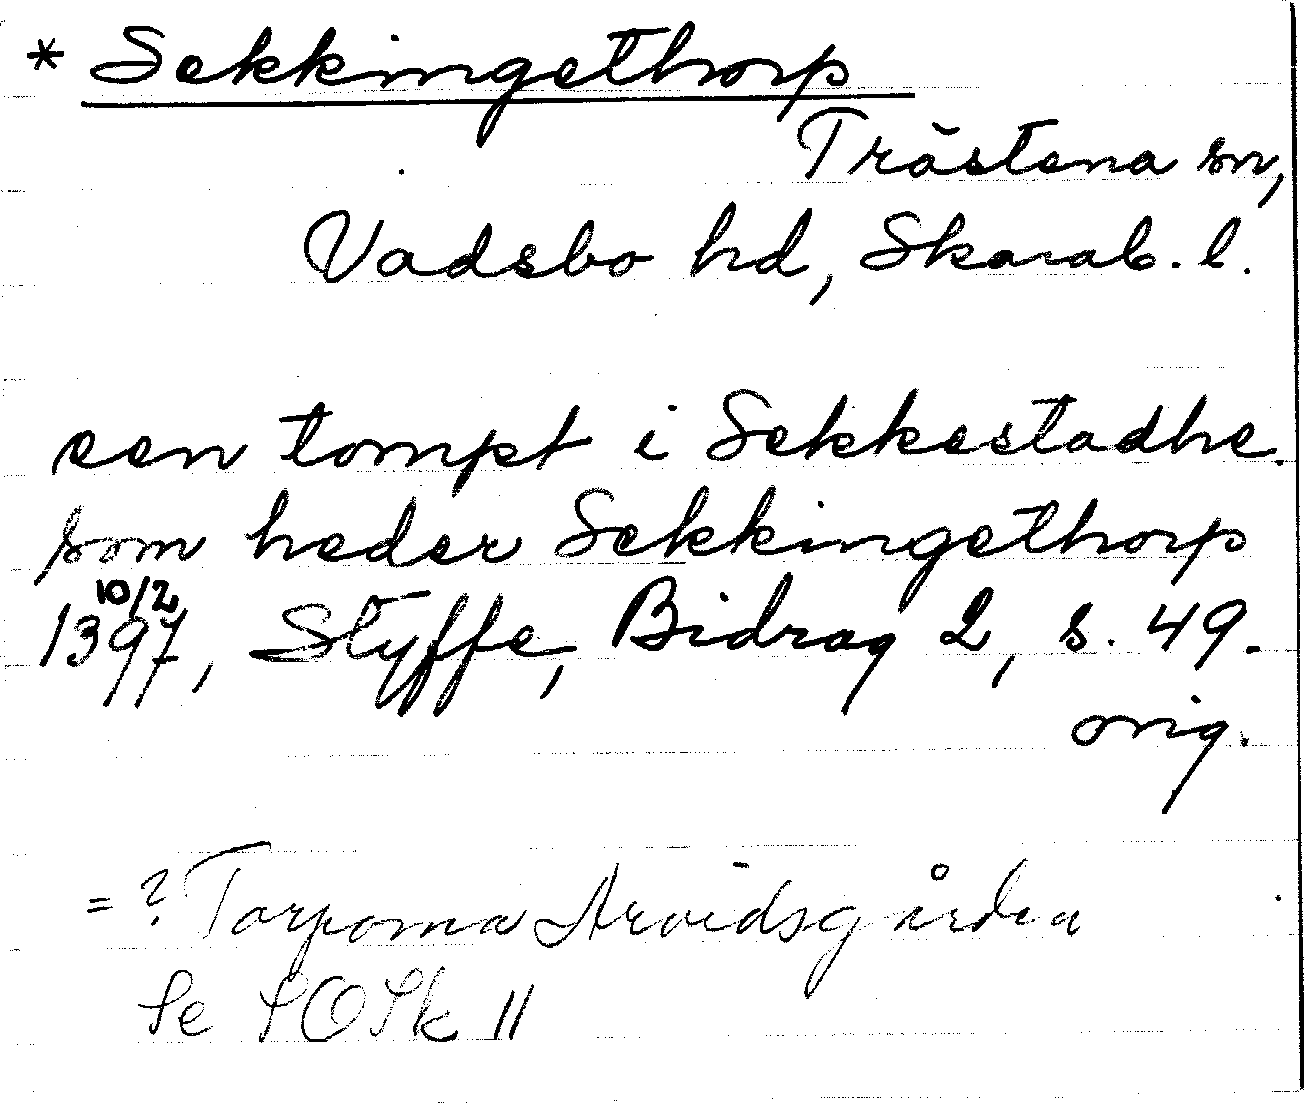 * Sekkingethorp
Trästena sn,
Vadsbo hd, Skarab. l.
een tompt i Sekkestadhe
som heder Sekkingethorp
10/2
1397, Styffe, Bidrag 2, s. 49.
orig.
= ? Torporna Arvidsgården
Se SOSk 11